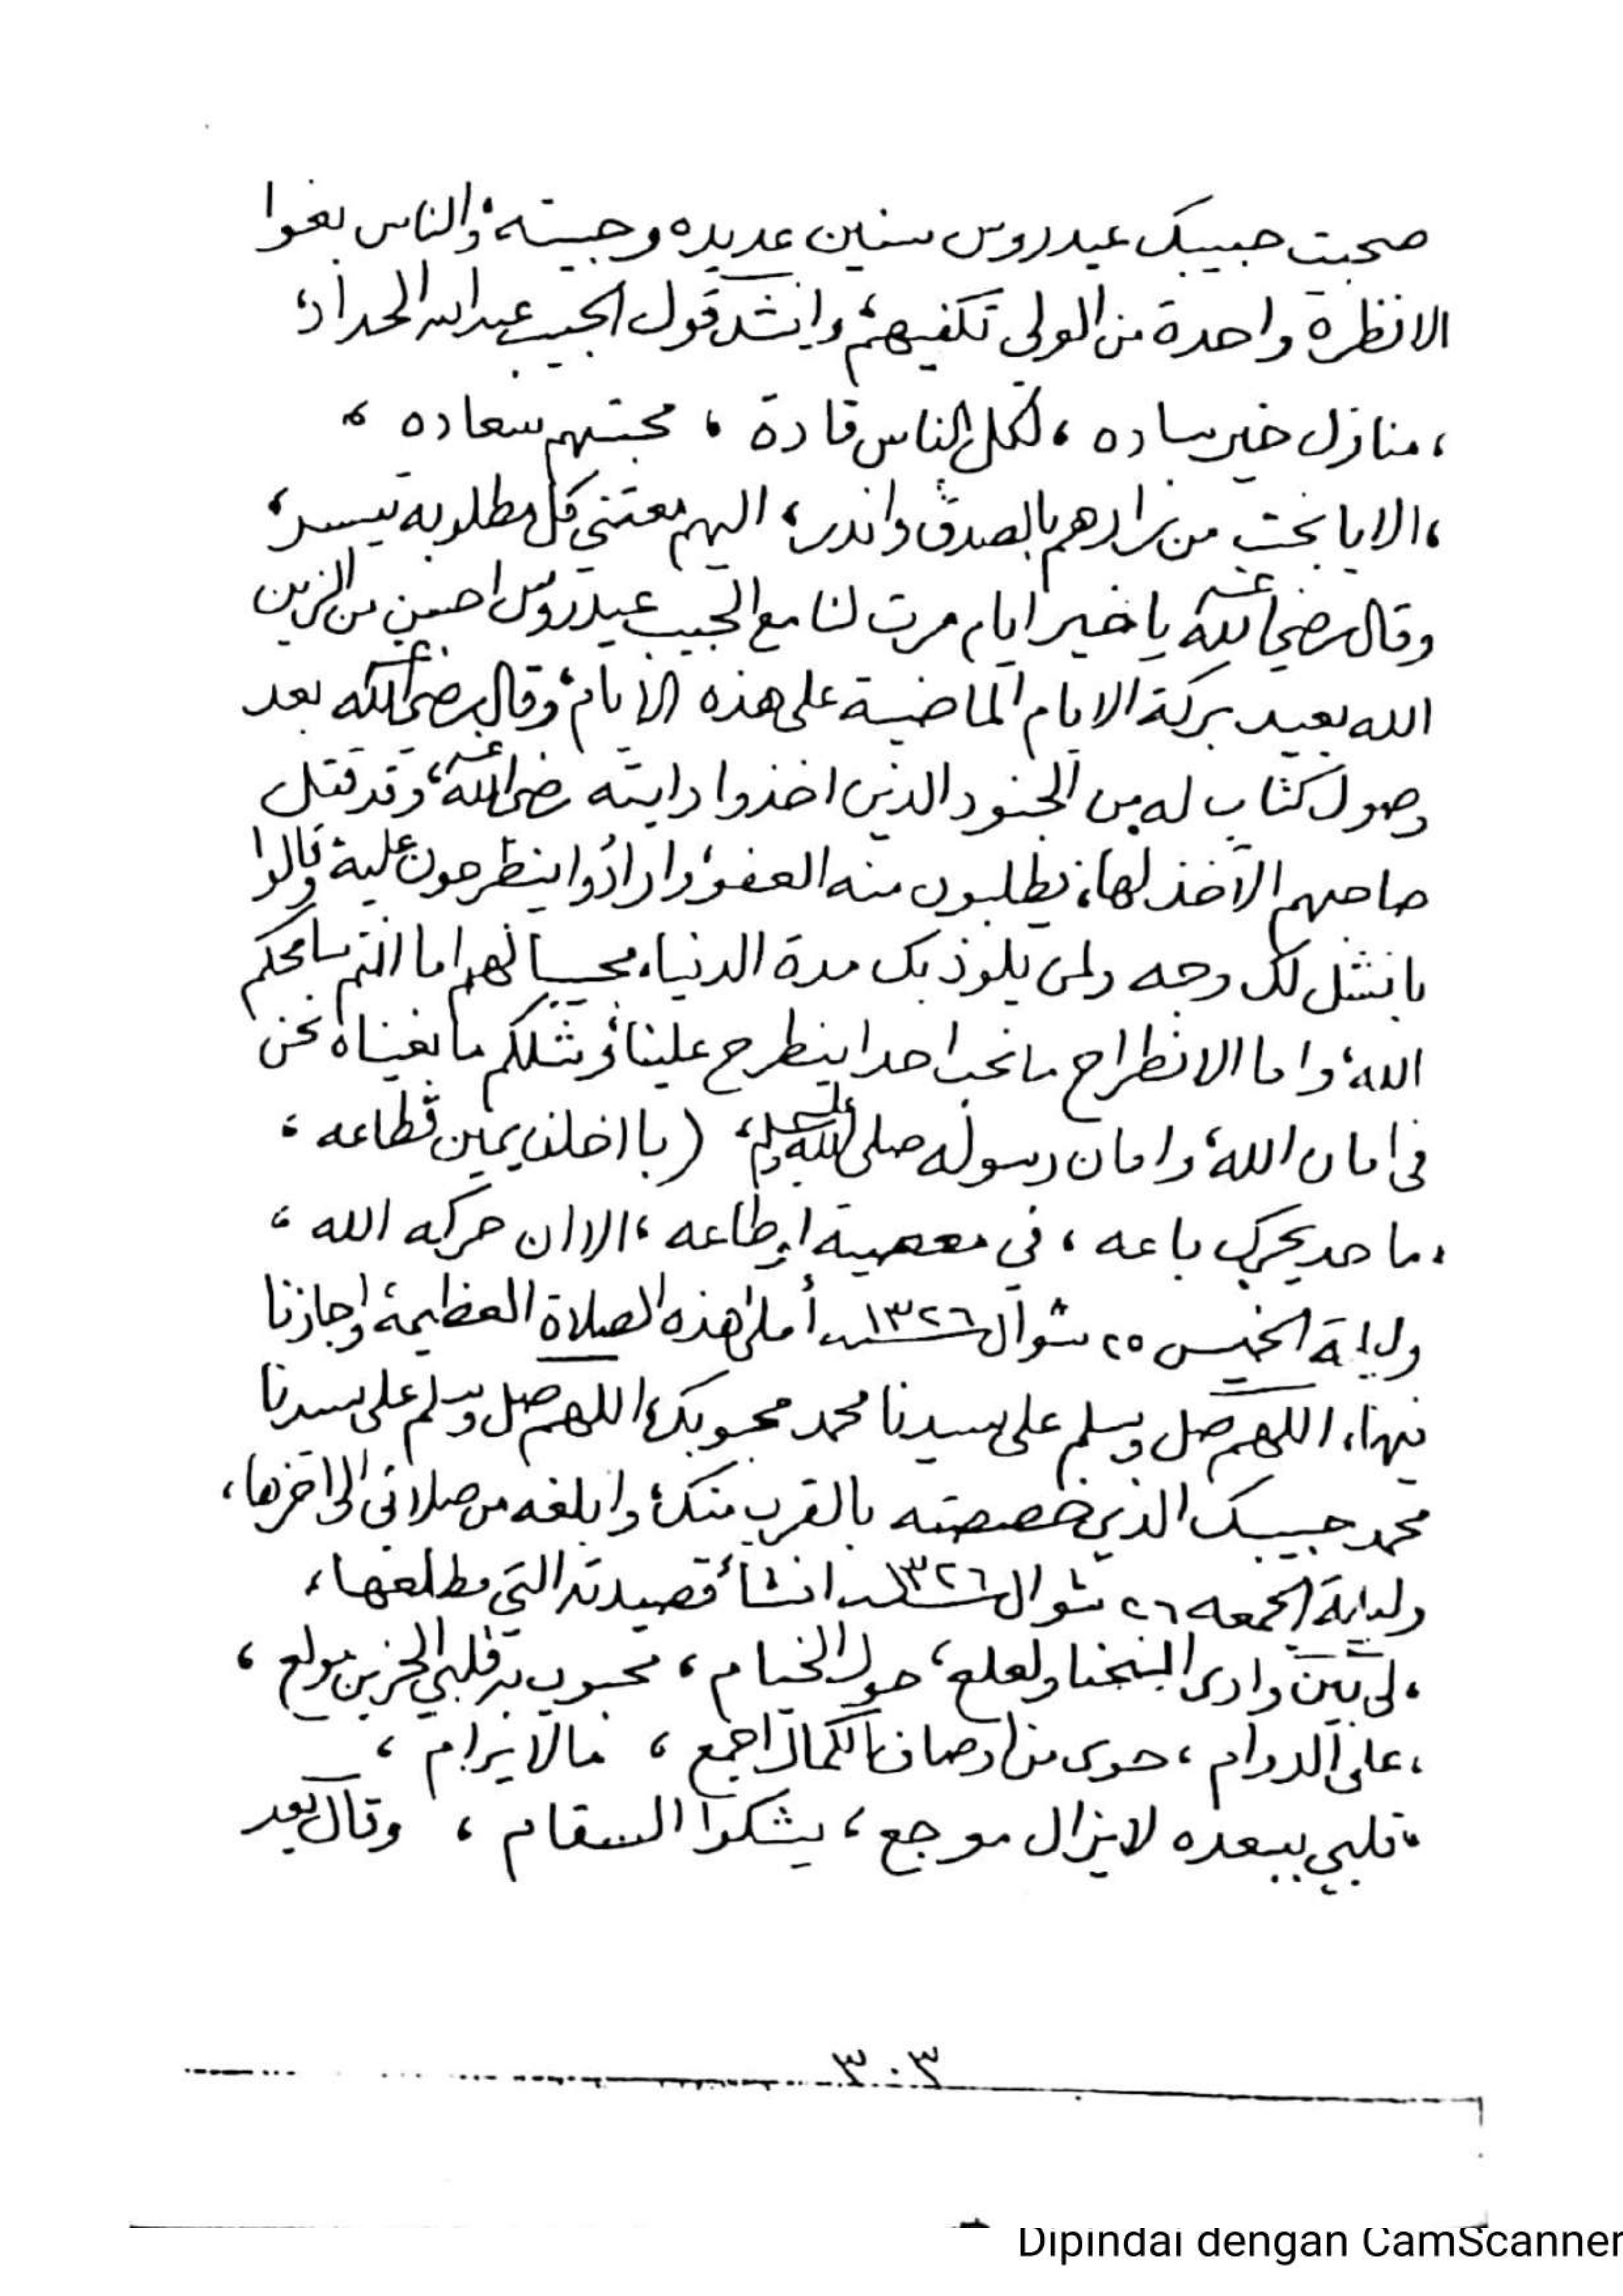 صحبت حبيبك عيدروس سنين عديده وحبيته، والناس بغوا
الا نظرة واحدة من الولي تكفيهم، وانشد قول الحبيب عبدالله الحداد،
، منازل خير ساده ، لكل الناس قادة ، محبتهم سعاده ،
، الا يا بخت من زارهم بالصدق واندر، اليهم معتني كل مطلوبه تيسر،
وقال رضي الله عنه يا خير ايام مرت لنا مع الحبيب عيدروس احسن من الزين
الله يعيد بركة الايام الماضية على هذه الايام، وقال رضي الله عنه بعد
وصول كتاب له من الجنود الذين اخذوا دابته رضي الله عنه، وقد قتل
صاحبهم الآخذ لها، يطلبون منه العفو، وارادوا ينطرحون عليه، وقالوا
بانشل لك وجه ولمن يلوذ بك مدة الدنيا، مجيبا لهم اما انتم سامحكم
الله، واما الانطراح ما نحب احدا ينطرح علينا، ومثلكم ما بغيناه نحن
في امان الله، وامان رسوله صلى الله عليه وسلم، (با اخلف يمين قطاعه ،
، ما حد يحرك باعه ، في معصية او طاعه ، الا ان حركه الله ،
وليلة الخميس ٢٥ شوال سنة ١٣٢٦ أملى هذه الصلاة العظيمة، واجازنا
فيها، اللهم صل وسلم على سيدنا محمد محبوبك، اللهم صل وسلم على سيدنا
محمد حبيبك الذي خصصته بالقرب منك، وابلغه من صلاتي الى آخرها،
وليلة الجمعه ٢٦ شوال سنة ١٣٢٦ انشأ قصيدته التي مطلعها،
، لي بين وادي المنحنا ولعلع، حول الخيام ، محبوب به قلبي الحزين مولع ،
، على الدوام ، حوى من اوصاف الكمال اجمع ، مالا يرام ،
، قلبي ببعده لايزال موجع ، يشكوا السقام ، وقال بعد
٣٠٣
Dipindai dengan CamScanner